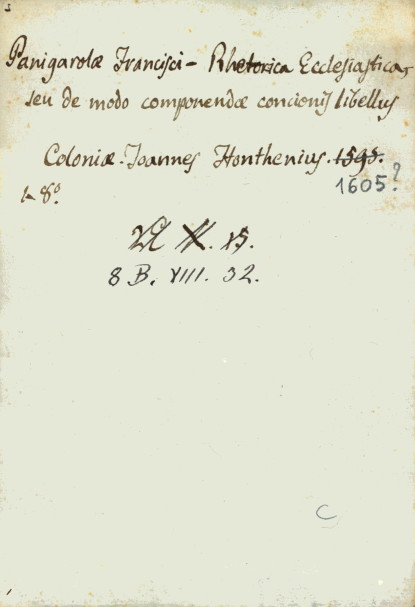 Panigarolæ Francisci - Rhetorica Ecclesiastica,
seu de modo componendæ concionis libellus
Coloniæ. Joannes Honthenius. 1595.
1605?
in 8º.
X. 15.
8 B. VIII. 32.
C